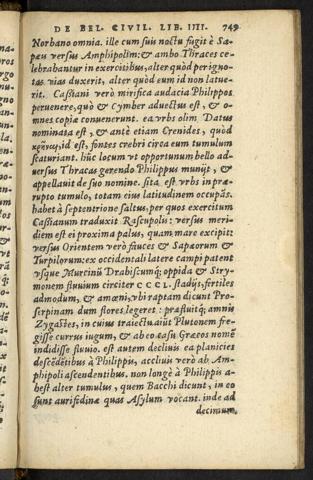 DE BEL. CIVIL. LIB. IIII. 749
Norbano omnia. ille cum suis noctu fugit è Sa-
pæu versus Amphipolim: & ambo Thraces ce-
lebrabantur in exercitibus, alter quòd per igno-
tas vias duxerit, alter quòd eum id non latue-
rit. Caßiani verò mirifica audacia Philippos
peruenere, quò & Cymber aduectus est, & o-
mnes copiæ conuenerunt. ea vrbs olim Datus
nominata est, & antè etiam Crenides, quòd
κρῆναι, id est, fontes crebri circa eum tumulum
scaturiant. hũc locum vt opportunum bello ad-
uersus Thracas gerendo Philippus muniŷt, &
appellauit de suo nomine. sita est vrbs in præ-
rupto tumulo, totam eius latitudinem occupãs.
habet à septentrione saltus, per quos exercitum
Caßianum traduxit Rascupolis: versus meri-
diem est ei proxima palus, quam mare excipit:
versus Orientem verò fauces & Sapæorum &
Turpilorum: ex occidentali latere campi patent
vsque Murcinũ Drabiscumq; oppida & Stry-
monem fluuium circiter CCCL. stadijs, fertiles
admodum, & amœni, vbi raptam dicunt Pro-
serpinam dum flores legeret: præfluitq; amnis
Zygastes, in cuius traiectu aiũt Plutonem fre-
gisse currus iugum, & ab eo casu Græcos nomē
indidisse fluuio. est autem decliuis ea planicies
descēdētibus à Philippis, accliuis verò ab Am-
phipoli ascendentibus. non longè à Philippis a-
best alter tumulus, quem Bacchi dicunt, in eo
sunt aurifodinæ quas Asylum vocant. inde ad
decimum